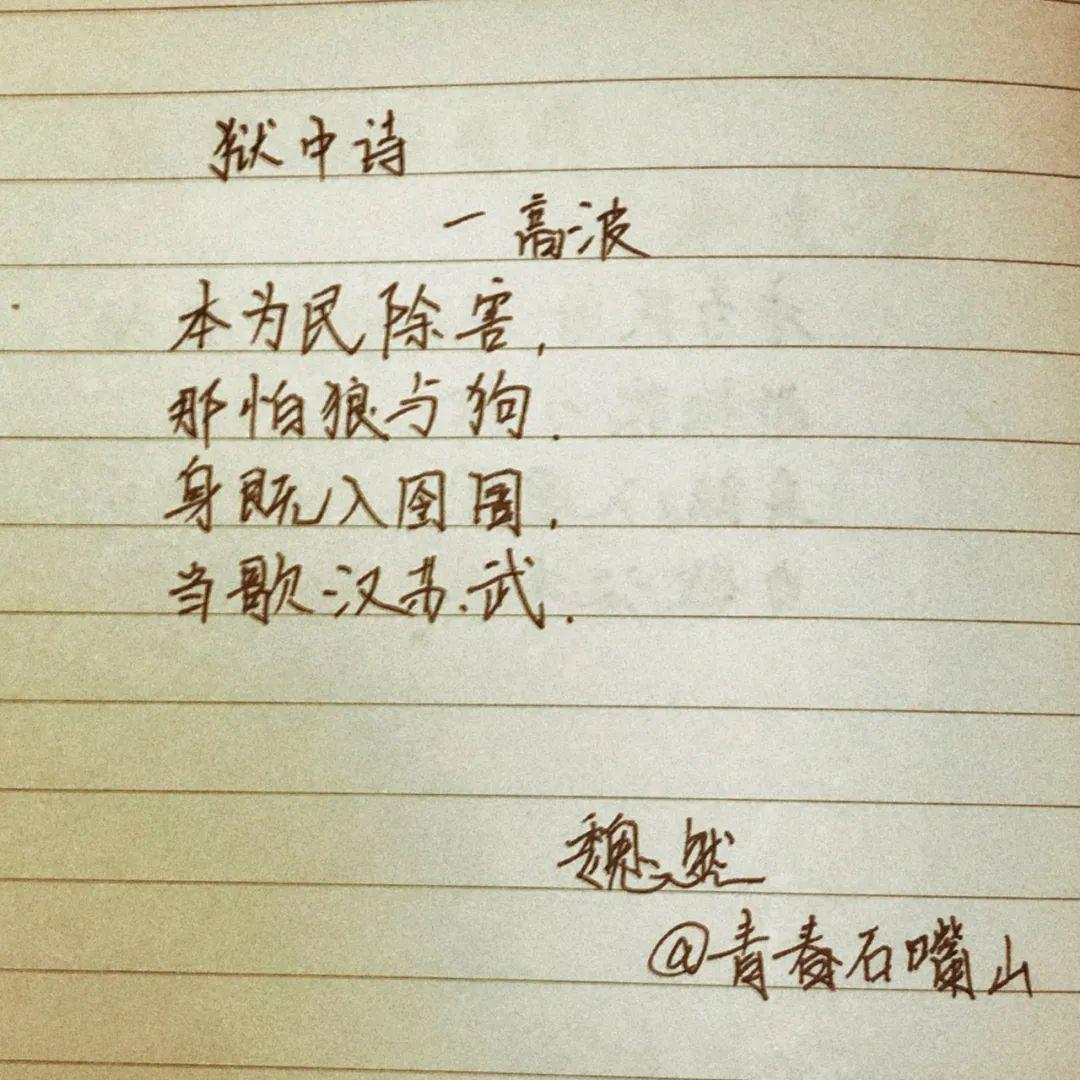 狱中诗
一高波
本为民除害,
那怕狼与狗.
身既入囹圄.
当歌汉苏武.
魏然
@青春石嘴山